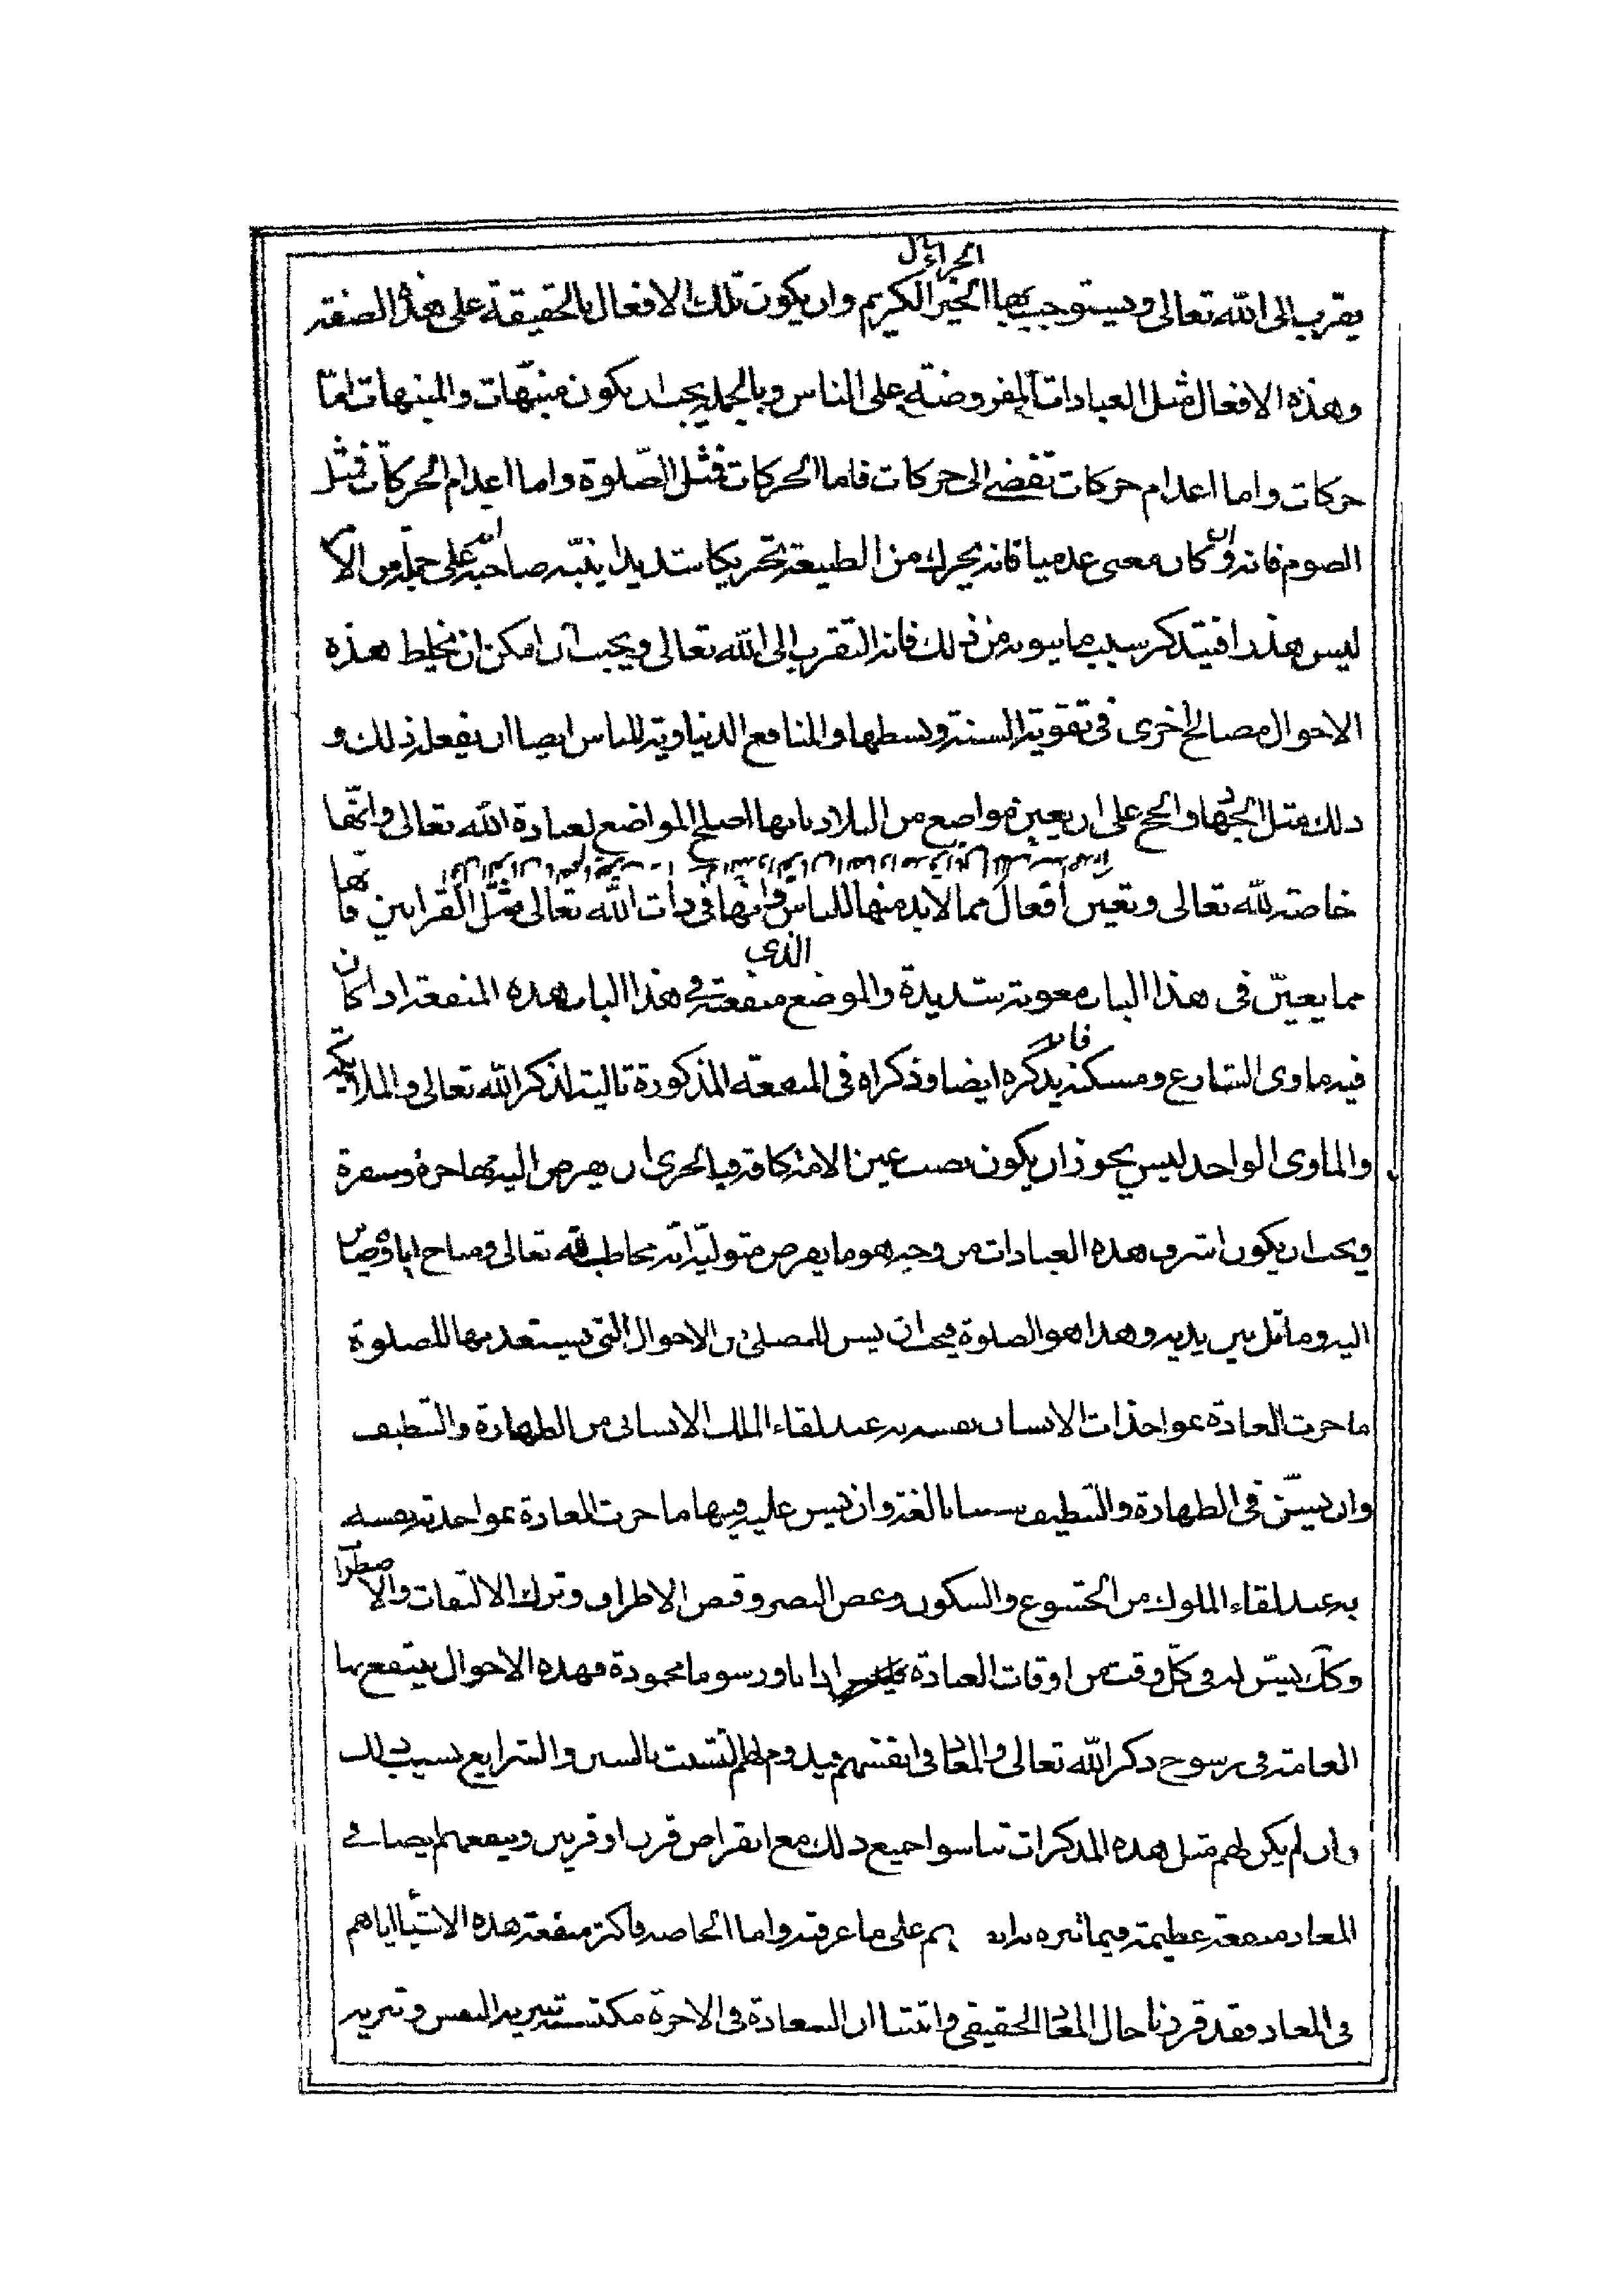 الجزاء
يقرب الى الله تعالى ويستوجب بها الخير الكريم وان يكون تلك الافعال بالحقيقة على هذه الصفة
وهذه الافعال مثل العبادات المفروضة على الناس وبالجملة يجب ان يكون منبّهات والمنبهات امّا
حركات واما اعدام حركات تفضى الى حركات فاما الحركات فمثل الصّلوة واما اعدام الحركات فمثل
الصوم فانه وان كان معنى عدميا فانه يحرك من الطبيعة تحريكا شديدا ينبّه صاحبه على جملة من الامر
ليس هذرا فيتذكر سبب ما ينويه من ذلك فانه التقرب الى الله تعالى ويجب ان امكن ان يخلط هذه
الاحوال مصالح اخرى فى تقوية السنة وبسطها والمنافع الدنياوية للناس ايضا ان يفعل ذلك و
ذلك مثل الجهاد والحج على ان يعين مواضع من البلاد بانها اصلح المواضع لعبادة الله تعالى وانّها
خاصة لله تعالى وتعين افعال مما لابد منها للناس وانها فى ذات الله تعالى مثل القرابين فانّها
مما يعيّن فى هذا الباب معونة شديدة والموضع الذى منفعته فى هذا الباب هذه المنفعة اذا كان
فيه ماوى الشارع ومسكنه فانه يذكره ايضا وذكراه فى المنفعة المذكورة تالية لذكر الله تعالى والملائكة
والماوى الواحد ليس يجوز ان يكون نصب عين الامة كافة فبالحرى ان يفرض اليه مهاجرة وسفرة
ويجب ان يكون اشرف هذه العبادات من وجه هو ما يفرض متوليه انه مخاطب لله تعالى ومناج اياه وصائر
اليه وماثل بين يديه وهذا هو الصلوة فيجب ان يسن للمصلى من الاحوال التى يستعد بها للصلوة
ما جرت العادة بمواخذات الانسان نفسه به عند لقاء الملك الانسانى من الطهارة والتنظيف
وان يسّن فى الطهارة والتنظيف سننا بالغة وان يسن عليه فيها ما جرت العادة بمواخدته نفسه
به عند لقاء الملوك من الخشوع والسكون وغض البصر وقبض الاطراف وترك الالتفات والاضطراب
وكك يسّن له فى كلّ وقت من اوقات العبادة ادابا ورسوما محمودة فهذه الاحوال ينتفع بها
العامة فى رسوخ ذكر الله تعالى والمعاد فى انفسهم فيدوم لهم التشبث بالسنن والشرايع بسبب ذلك
وان لم يكن لهم مثل هذه المذكرات تناسوا جميع ذلك مع انقراض قرن او قرنين وينفعهم ايضا فى
المعاد منفعة عظيمة فيما تنزه به انفسهم على ما عرفته واما الخاصه فاكثر منفعة هذه الاشياء اياهم
فى المعاد فقد قررنا حال المعاد الحقيقى واثبتنا ان السعادة فى الاخرة مكتسبة بتنزيه النفس وتنزيه